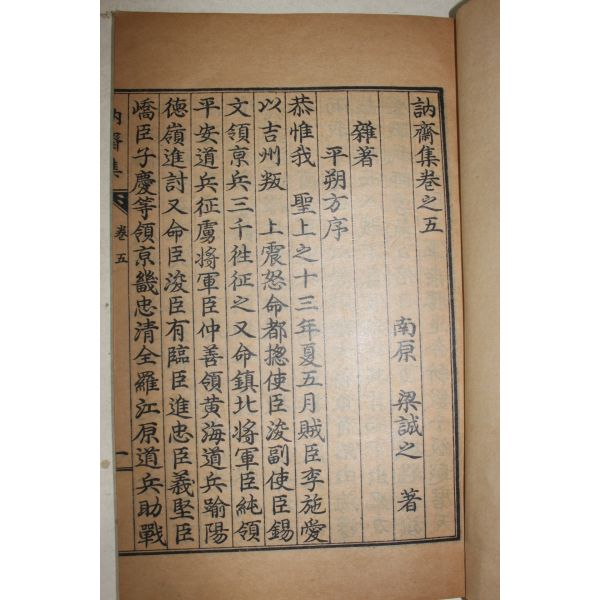 訥齋集卷之五
南原 梁誠之 著
雜著
平朔方序
恭惟我 聖上之十三年夏五月賊臣李施愛
以吉州叛 上震怒命都摠使臣浚副使臣錫
文領京兵三千徃征之又命鎮北將軍臣純領
平安道兵征虜將軍臣仲善領黃海道兵踰陽
德嶺進討又命臣浚臣有臨臣進忠臣義堅臣
嶠臣子慶等領京畿忠清全羅江原道兵助戰
訥齋集
卷五
一